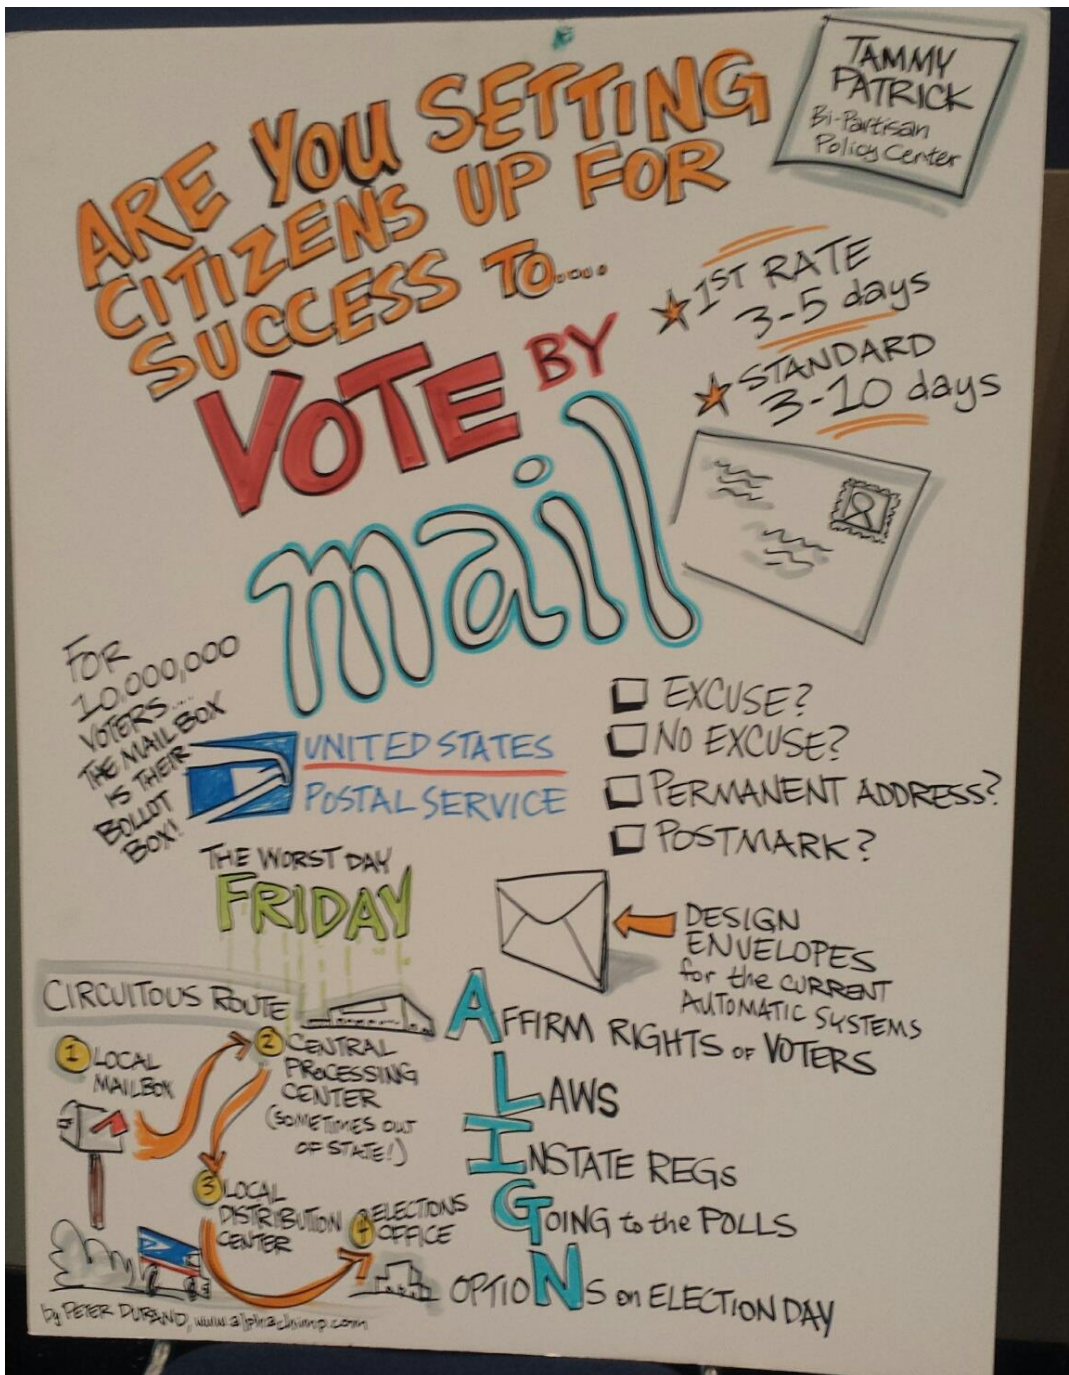 TAMMY
PATRICK
Bi-Partisan
Policy Center
ARE YOU SETTING
CITIZENS UP FOR
SUCCESS TO....
VOTE BY
mail
1ST RATE
3-5 days
STANDARD
3-10 days
FOR
10,000,000
VOTERS....
THE MAIL BOX
IS THEIR
BOLLOT
BOX!
UNITED STATES
POSTAL SERVICE
EXCUSE?
NO EXCUSE?
PERMANENT ADDRESS?
POSTMARK?
THE WORST DAY
FRIDAY
DESIGN
ENVELOPES
for the CURRENT
AUTOMATIC SYSTEMS
CIRCUITOUS ROUTE
1 LOCAL
MAILBOX
2 CENTRAL
PROCESSING
CENTER
(SOMETIMES OUT
OF STATE!)
3 LOCAL
DISTRIBUTION
CENTER
4 ELECTIONS
OFFICE
AFFIRM RIGHTS OF VOTERS
LAWS
INSTATE REGS
GOING to the POLLS
OPTIONS on ELECTION DAY
by PETER DURAND, www.alphachimp.com